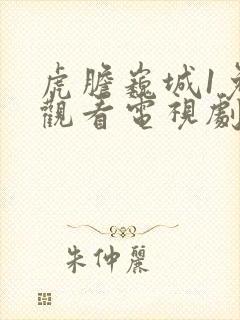 虎膽巍城1免
觀看電視劇
朱仲麗